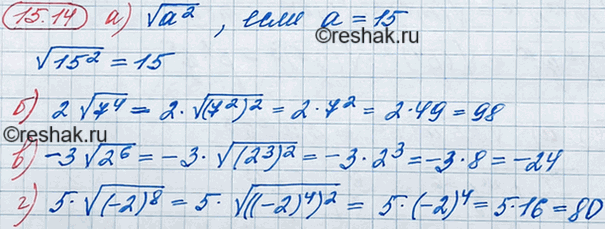 15.14 а) √a² , если a = 15
©reshak.ru
√15² = 15
б) 2√7⁴ = 2·√(7²)² = 2·7² = 2·49 = 98
©reshak.ru
в) -3√2⁶ = -3·√(2³)² = -3·2³ = -3·8 = -24
г) 5·√(-2)⁸ = 5·√((-2)⁴)² = 5·(-2)⁴ = 5·16 = 80